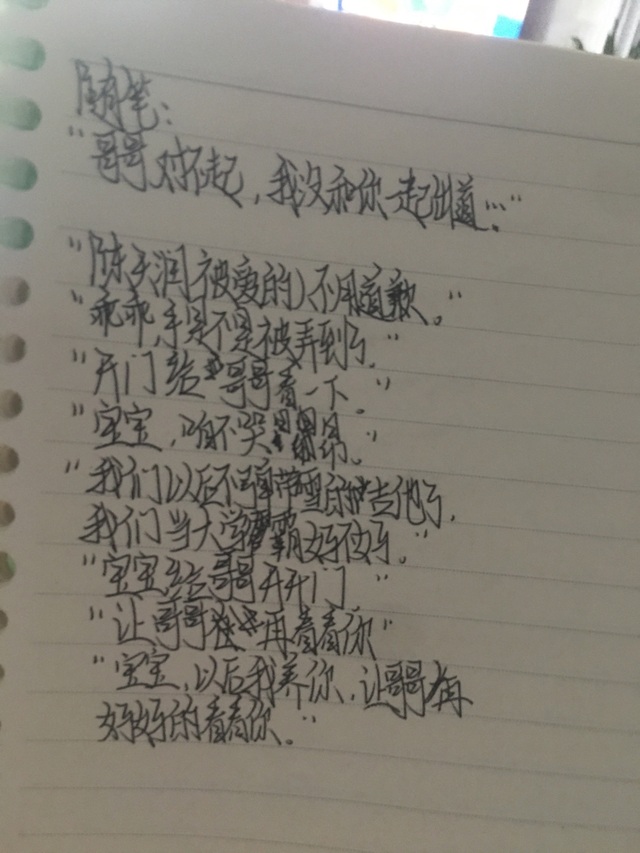 随笔：
“哥哥对不起，我没和你一起出道…”
“陈天润被爱的人不用道歉。”
“乖乖，手是不是被弄到了。”
“开门给哥哥看一下。”
“宝宝，咱不哭昂。”
“我们以后不弹带雪的吉他了，
我们当大学霸好不好。”
“宝宝给哥哥开开门。”
“让哥哥再看看你”
“宝宝，以后我养你，让哥哥再
好好的看看你。”